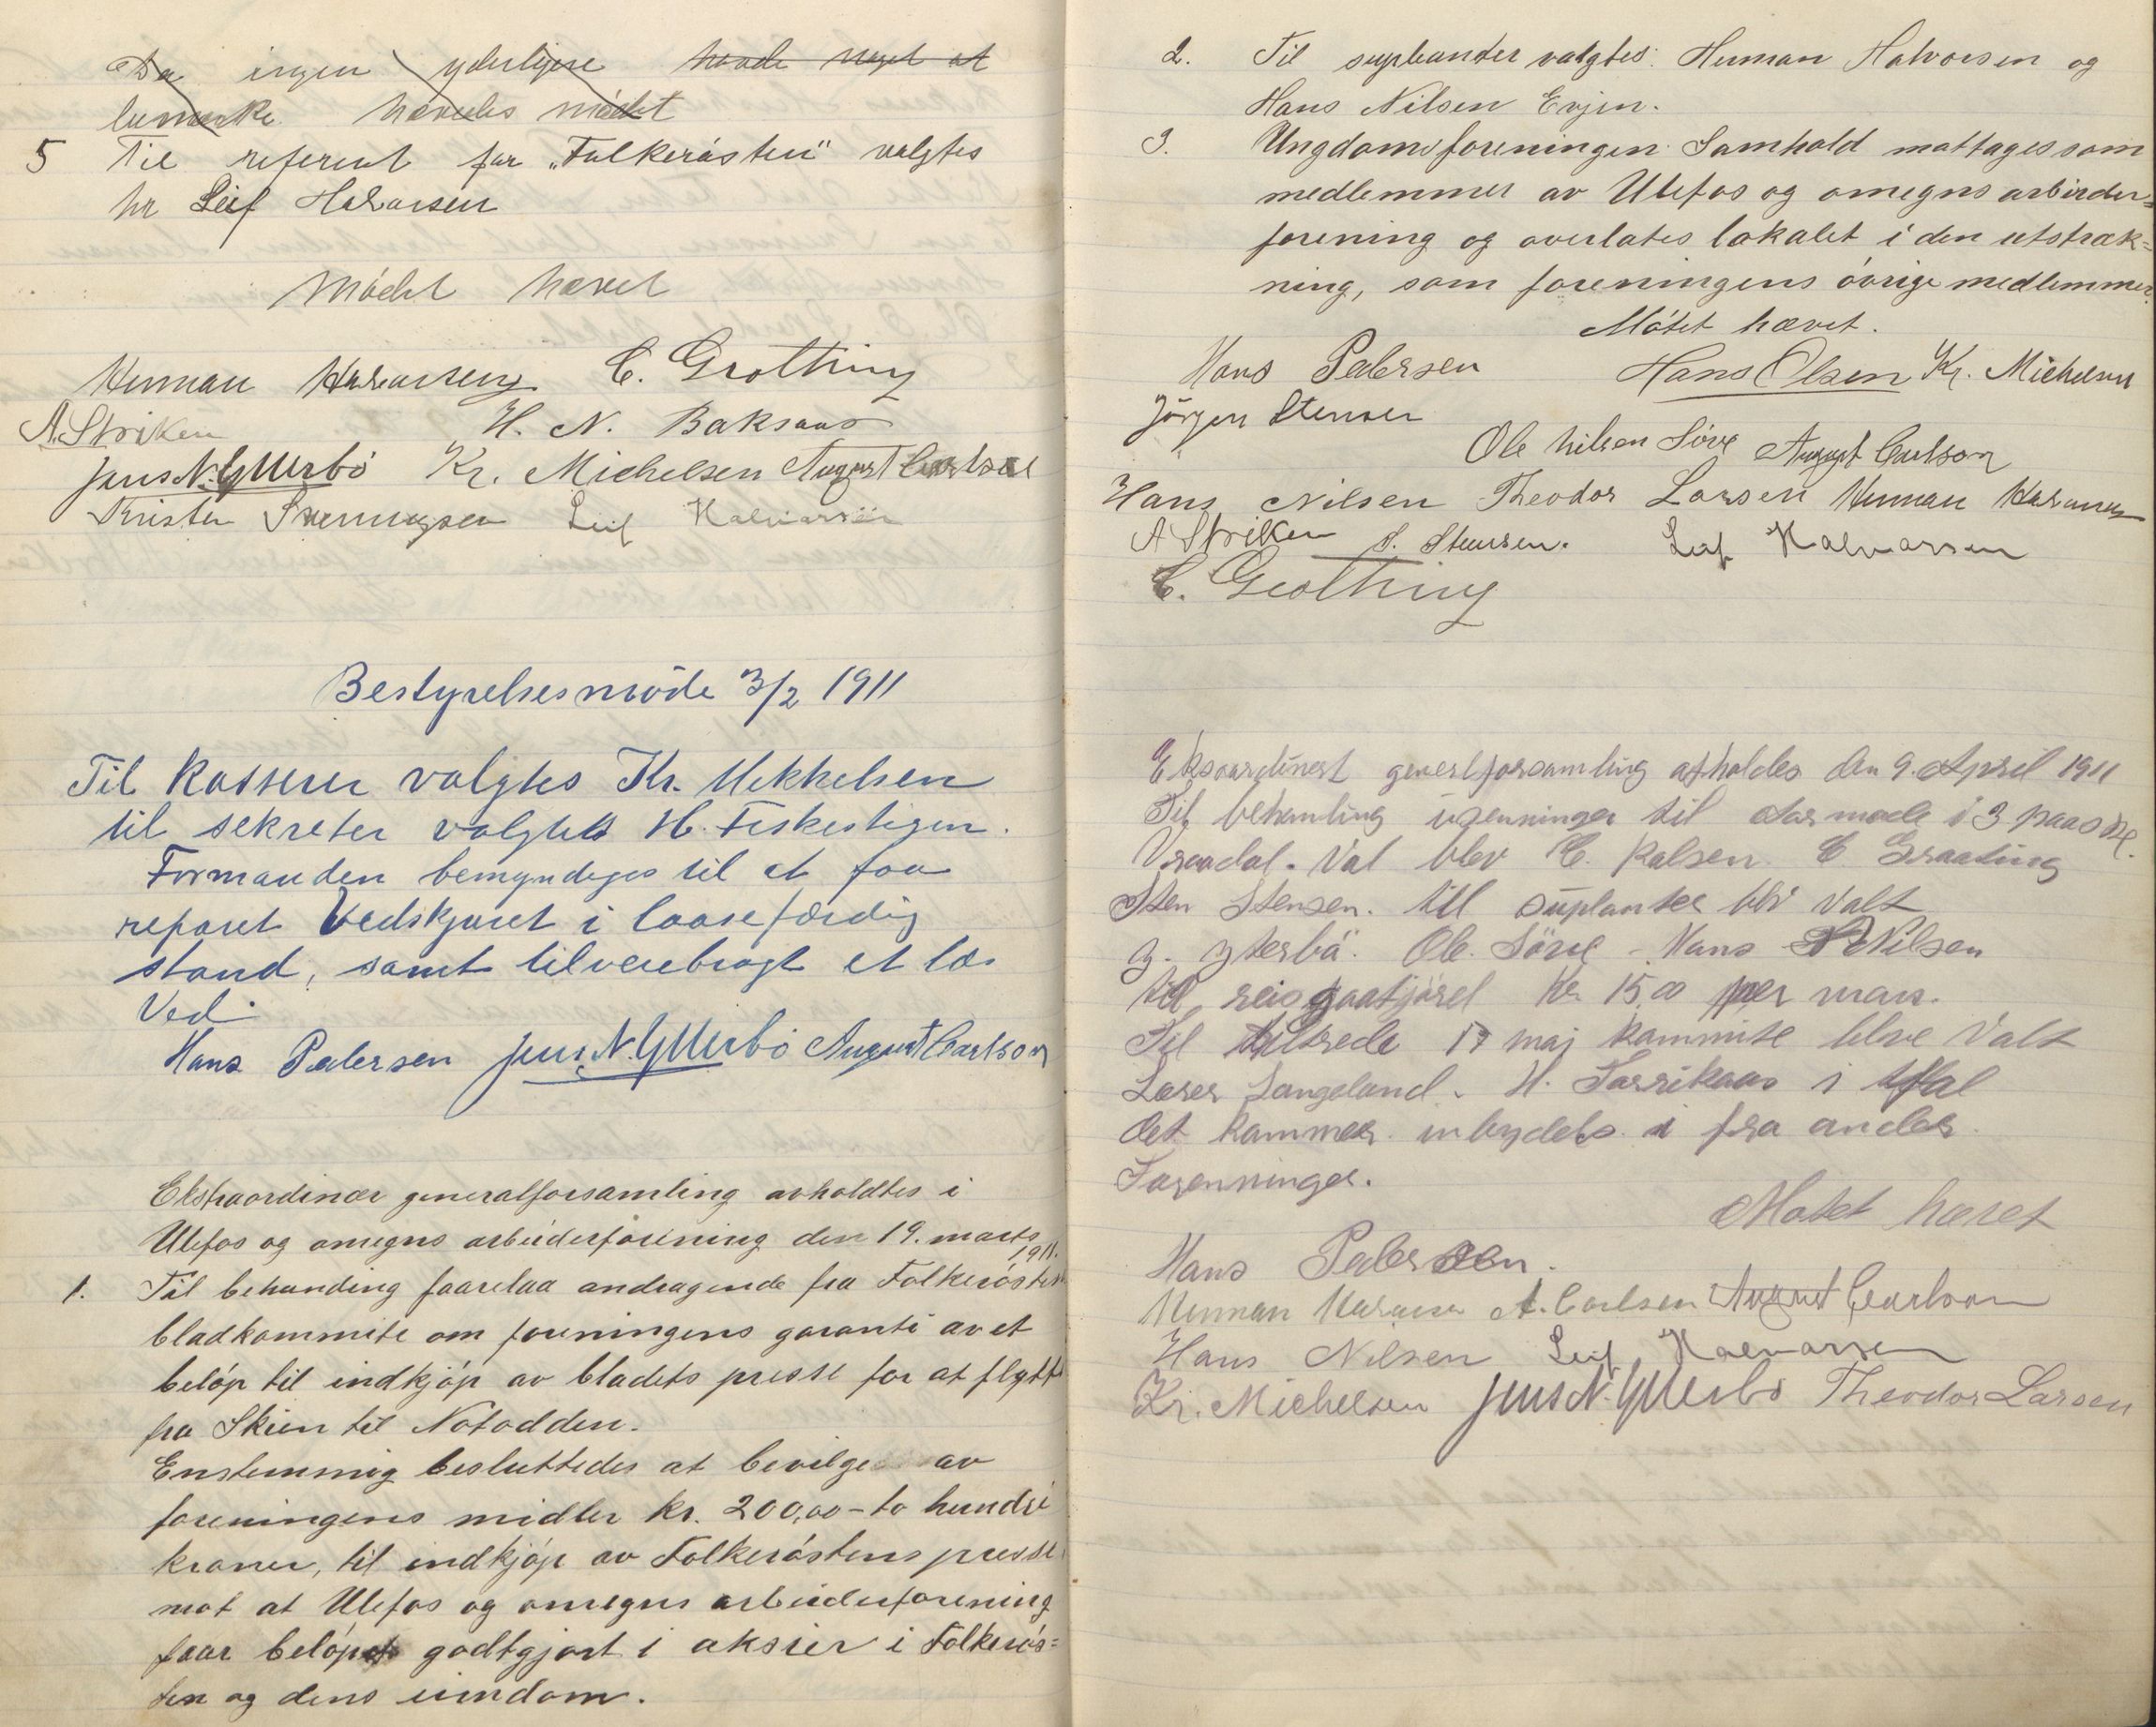 Da ingen yderligere havde noget at
bemærke hævedes mødet
5 Til referent for „Folkerösten" valgtes
hr Leif Halvorsen
Mödet hævet
Herman Halvorsen C. Grotthing
A. Striken H. N. Baksaas
Jens N. Ytterbö Kr. Michelsen August Carlson
Kristen Leif Halvorsen
Bestyrelsesmöde 3/2 1911
Til Kasserer valgtes Kr. Mikkelsen
til sekretær valgtes H. Fiskestigen.
Formanden bemyndiges til at faa
reparet Vedskjuret i laasefærdig
stand, samt tilveiebragt et læs
Ved
Hans Pedersen Jens N. Ytterbö August Carlson
Ekstraordinær generalforsamling avholdtes i
Ulefos og omegns arbeiderforening den 19. marts
1911.
1. Til behanding foorelaa andragende fra Folkerösten
bladkommite om foreningens garanti av et
belöp til indkjöp av bladets presse for at flytte
fra Skien til Notodden.
Enstemmig besluttedes at bevilge av
foreningens midler kr. 200,00 – to hundre
kroner, til indkjöp av Folkeröstens presse
mot at Ulefos og omegns arbeiderforening
faar belöpet godtgjort i aksier i Folkerös=
ten og dens eiendom.
2. Til supleanter valgtes: Herman Halvorsen og
Hans Nilsen Evjen.
3. Ungdomsforeningen Samhold mottages som
medlemmer av Ulefos og omegns arbeider=
forening og overlates lokalet i den utstræk=
ning, som foreningens övrige medlemmer.
Mötet hævet.
Hans Pedersen Hans Olsen Kr. Michelsen
Jörgen Stensen
Ole Nilsen Söve August Carlson
Hans Nilsen Theodor Larsen Herman Halvorsen
A Striken S. Stensen. Leif Halvorsen
C. Grotthing
Eksoardinert generlforsamling afholdes den 9. April 1911
Til behamling til Aarmöde i 3 paaske
Vraadal. Val blev C. Kalsen C Graating
Sten Stensen. till suplanter blv valt
J. Yterbö. Ole. Söve – Hans Nilsen
til reisgaatjörel Kr 15,00 per man.
Til tiltrede 17 maj kommite blve Valt
Lærer Langeland. H. i tffal
det kommer inbydels i fra ander
Forenninger.
Motet hævet
Hans Pedersen.
Herman Halvorsen A. Carlsen August Carlson
Hans Nilsen Leif Halvorsen
Kr. Michelsen Jens N. Ytterbö Theodor Larsen